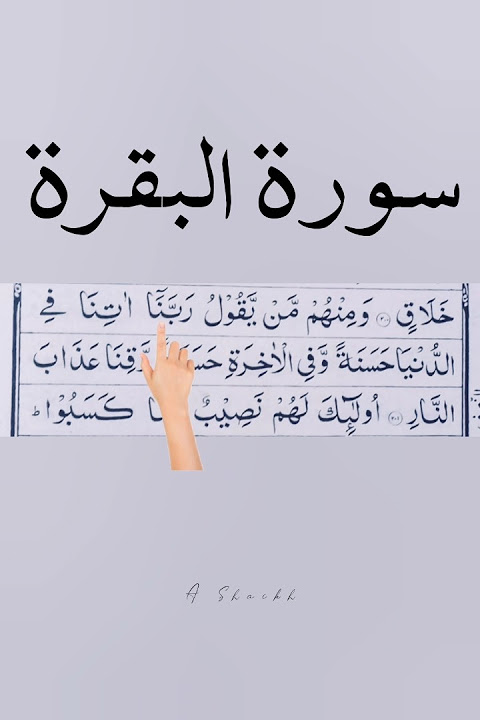 سورة البقرة
خَلَاقٍ ۝٢٠٠ وَمِنْهُمْ مَّنْ يَّقُوْلُ رَبَّنَآ اٰتِنَا فِي
الدُّنْيَا حَسَنَةً وَّفِي الْاٰخِرَةِ وَّقِنَا عَذَابَ
النَّارِ ۝٢٠١ اُولٰٓئِكَ لَهُمْ نَصِيْبٌ كَسَبُوْا ؕ
A Shaikh